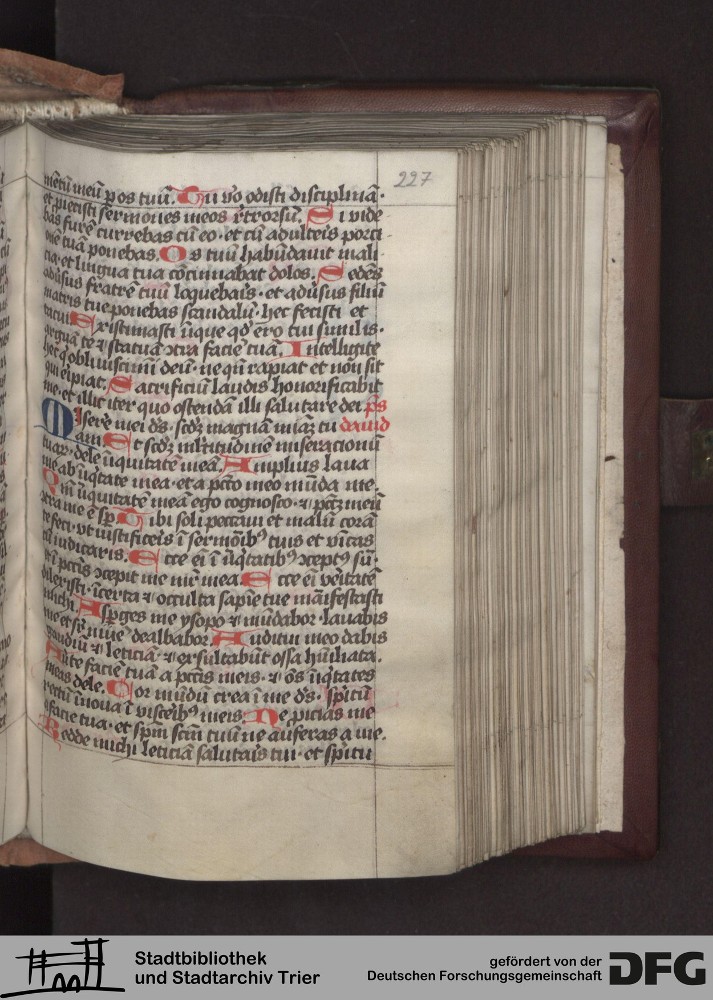 227
mentū meū p os tuū. Tu vo odisti disciplinā.
et piecisti sermones meos rtrorsū. Si vide
bas furē currebas cū eo. et cū adulteris porci
onē tuā ponebas. Os tuū habūdauit mali
cia. et lingua tua cōcinnabat dolos. Sedēs
adūsus fratrē tuū loquebaris. et adūsus filiū
matris tue ponebas scandalū. hec fecisti et
tacui Existimasti inique qd ero tui similis.
arguā te et statuā ꝯtra faciē tuā. Intelligite
hec q obliuiscimī deū. nequādo rapiat et non sit
qui eripiat. Sacrificiū laudis honorificabit
me. et illic iter quo ostendā illi salutare dei. ps
Miserē mei ds. scdz magnā miaz tu dauid
am. Et scdz mltitudinē miseracionū
tuar. dele iniquitatē meā. Amplius laua
me ab iniqtate mea. et a pcto meo mūda me.
Qm iniquitatē meā ego cognosco. et pctz meū
ꝯtra me ē sp. Tibi soli peccaui et malū corā
te feci. vt iustificeris ī sermōibꝰ tuis et vīcas
cū iudicaris. Ecce ei ī iniqtatibꝰ ꝯceptꝰ sū.
et ī pctis ꝯcepit me mr mea. Ecce ei veritatē
dilexisti. īcerta et occulta sapiē tue manifestasti
michi. Asperges me ysopo et mūdabor. lauabis
me et sr niuē dealbabor. Auditui meo dabis
gaudiū et leticiā. et exsultabūt ossa hūiliata.
Auerte faciē tuā a pctis meis. et oēs iniqtates
meas dele. Cor mūdū crea ī me ds. spiritū
rectū īnoua ī visceribꝰ meis. Ne proicias me
a facie tua. et spm scm tuū ne auferas a me.
Redde michi leticiā salutaris tui. et spiritu
Stadtbibliothek
und Stadtarchiv Trier
gefördert von der
Deutschen Forschungsgemeinschaft
DFG